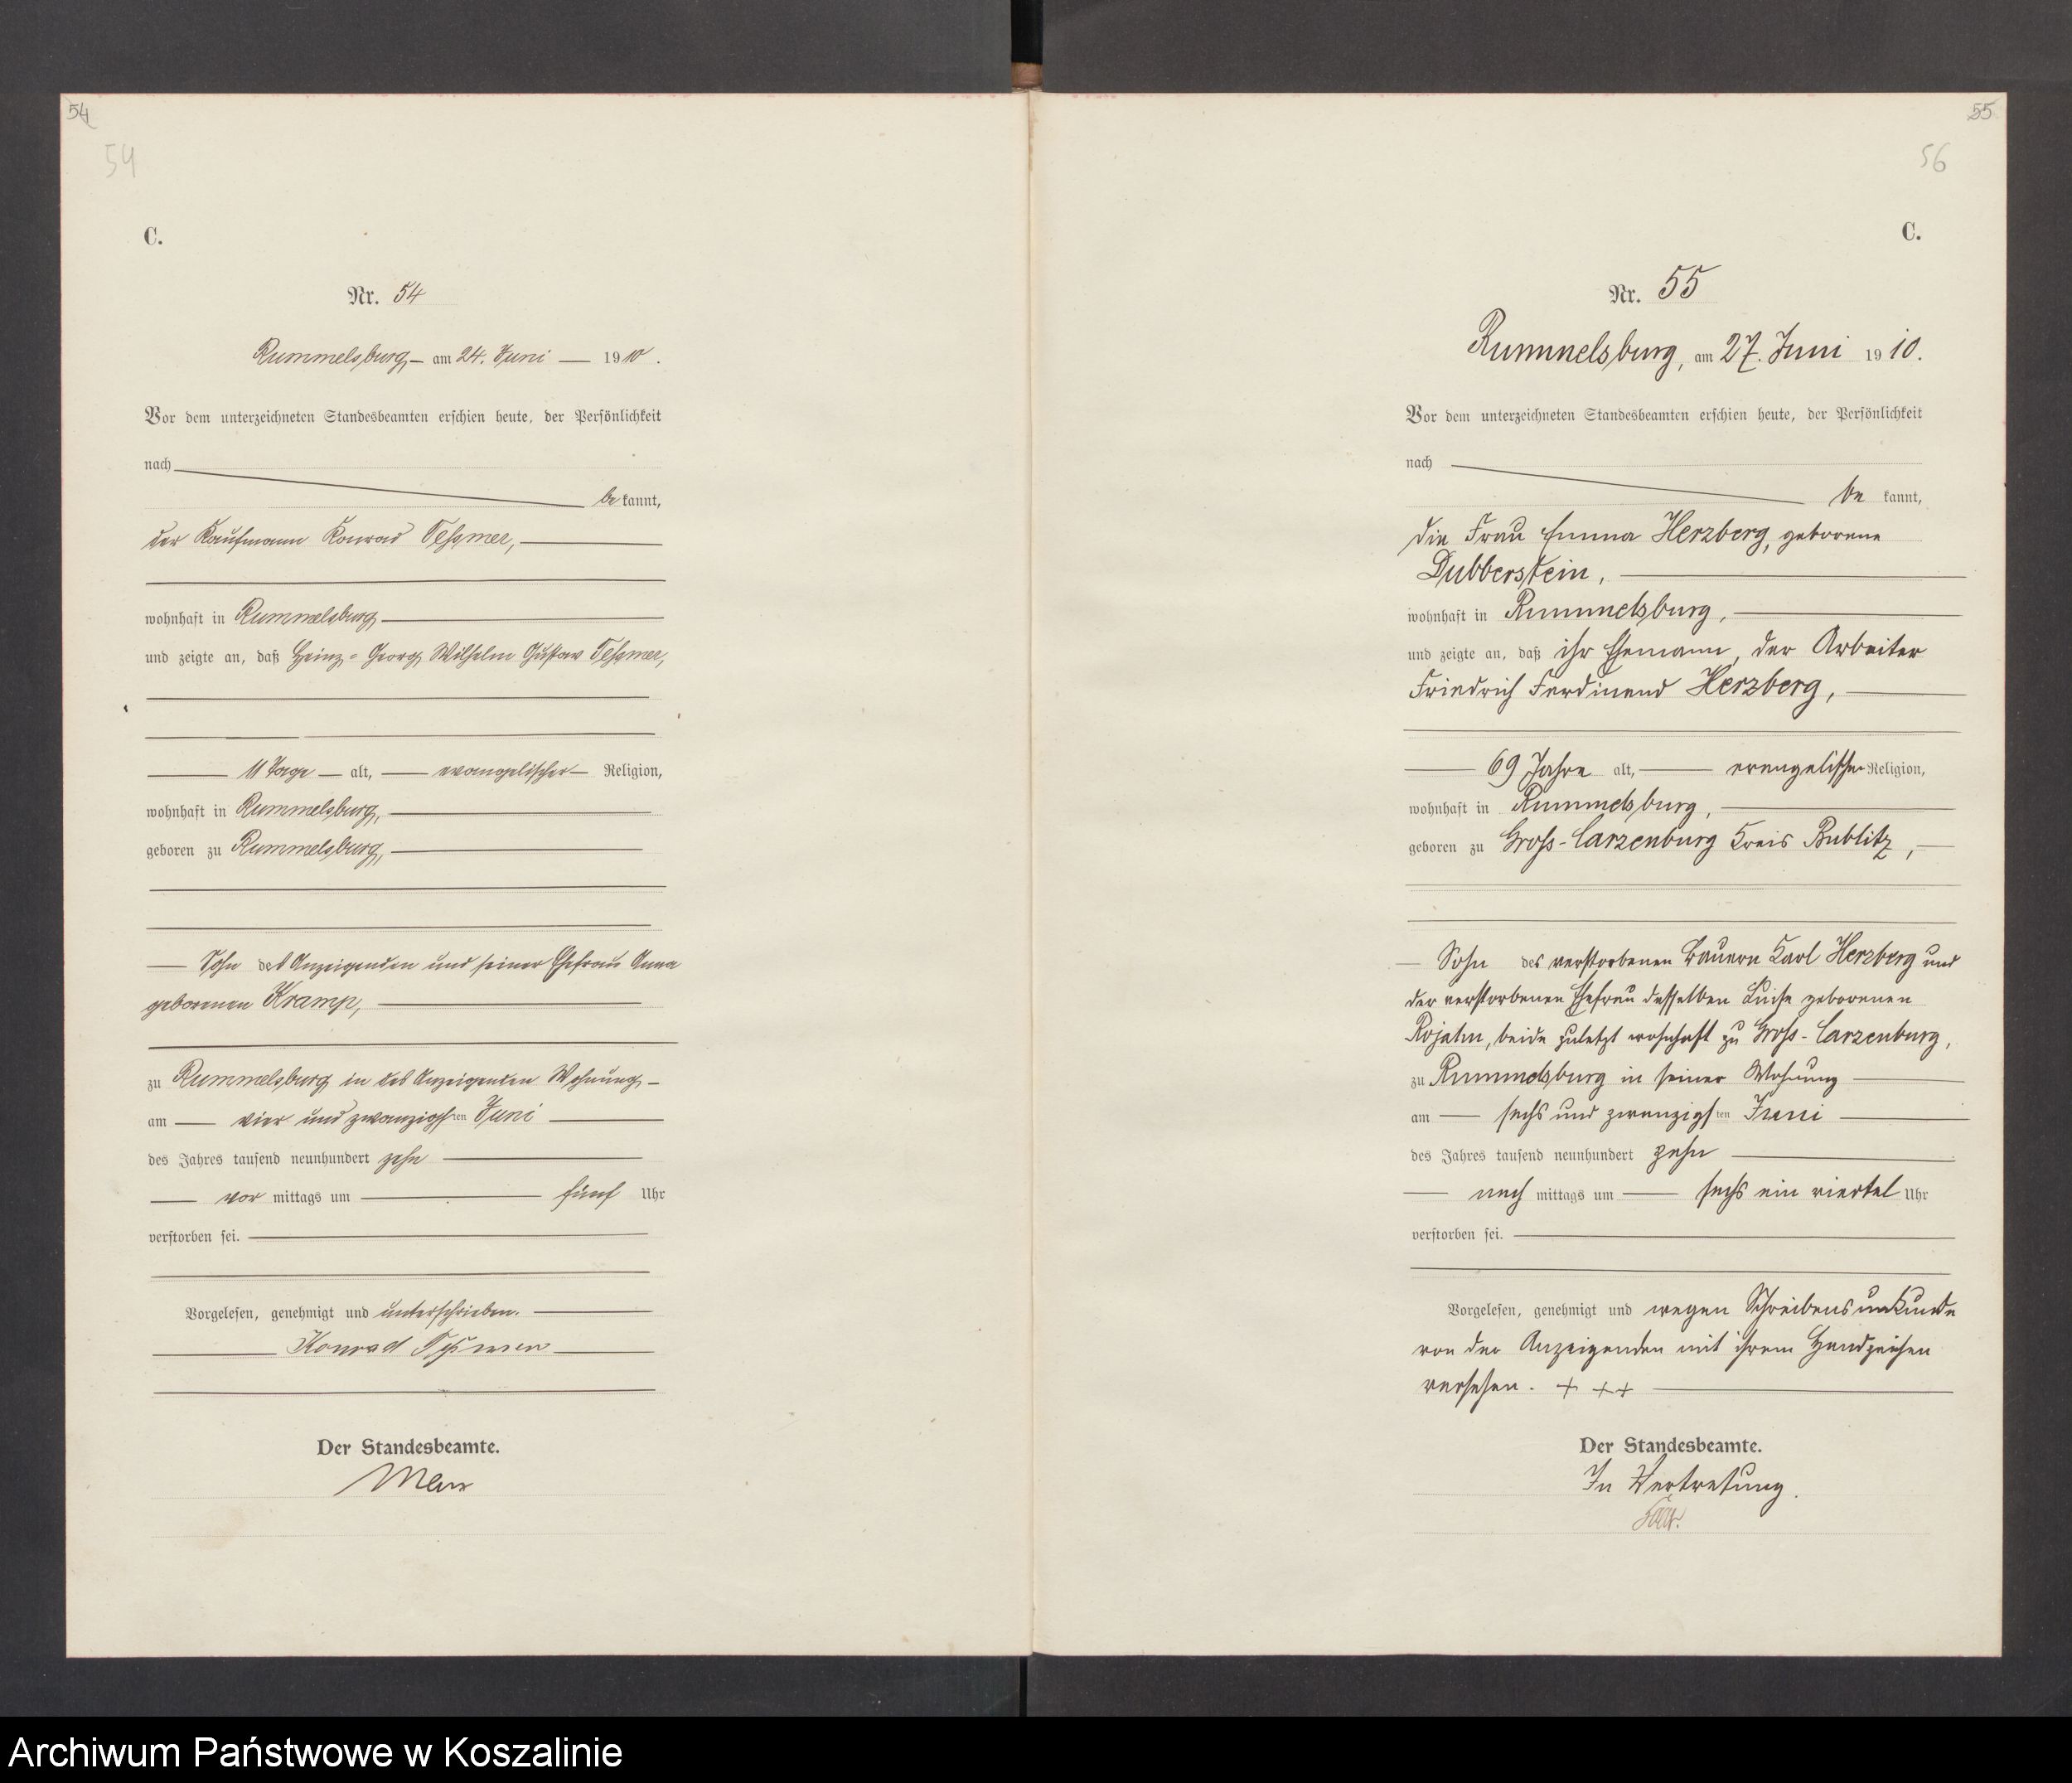 54
54
C.
Nr. 54
Rummelsburg, am 24. Juni 1910.
Vor dem unterzeichneten Standesbeamten erschien heute, der Persönlichkeit
nach
bekannt,
der Kaufmann Konrad Tessmer,
wohnhaft in Rummelsburg
und zeigte an, daß Heinz-Georg Wilhelm Gustav Tessmer,
11 Tage alt, evangelischer Religion,
wohnhaft in Rummelsburg,
geboren zu Rummelsburg,
Sohn des Anzeigenden und seiner Ehefrau Anna
geborenen Kramp,
zu Rummelsburg in des Anzeigenden Wohnung
am vier und zwanzigsten Juni
des Jahres tausend neunhundert zehn
vor mittags um fünf Uhr
verstorben sei.
Vorgelesen, genehmigt und unterschrieben.
Konrad Tessmer
Der Standesbeamte.
55
56
C.
Nr. 55
Rummelsburg, am 27. Juni 1910.
Vor dem unterzeichneten Standesbeamten erschien heute, der Persönlichkeit
nach
be kannt,
die Frau Emma Herzberg, geborene
Dubberstein,
wohnhaft in Rummelsburg,
und zeigte an, daß ihr Ehemann, der Arbeiter
Friedrich Ferdinand Herzberg,
69 Jahre alt, evangelischer Religion,
wohnhaft in Rummelsburg,
geboren zu Gross-Carzenburg Kreis Bublitz,
Sohn des verstorbenen Bauern Karl Herzberg und
der verstorbenen Ehefrau desselben Luise geborenen
Rojahn, beide zuletzt wohnhaft zu Gross-Carzenburg,
zu Rummelsburg in seiner Wohnung
am sechs und zwanzigsten Juni
des Jahres tausend neunhundert zehn
nach mittags um sechs ein viertel Uhr
verstorben sei.
Vorgelesen, genehmigt und wegen Schreibensunkunde
von der Anzeigenden mit ihrem Handzeichen
versehen. + ++
Der Standesbeamte.
In Vertretung.
Archiwum Państwowe w Koszalinie